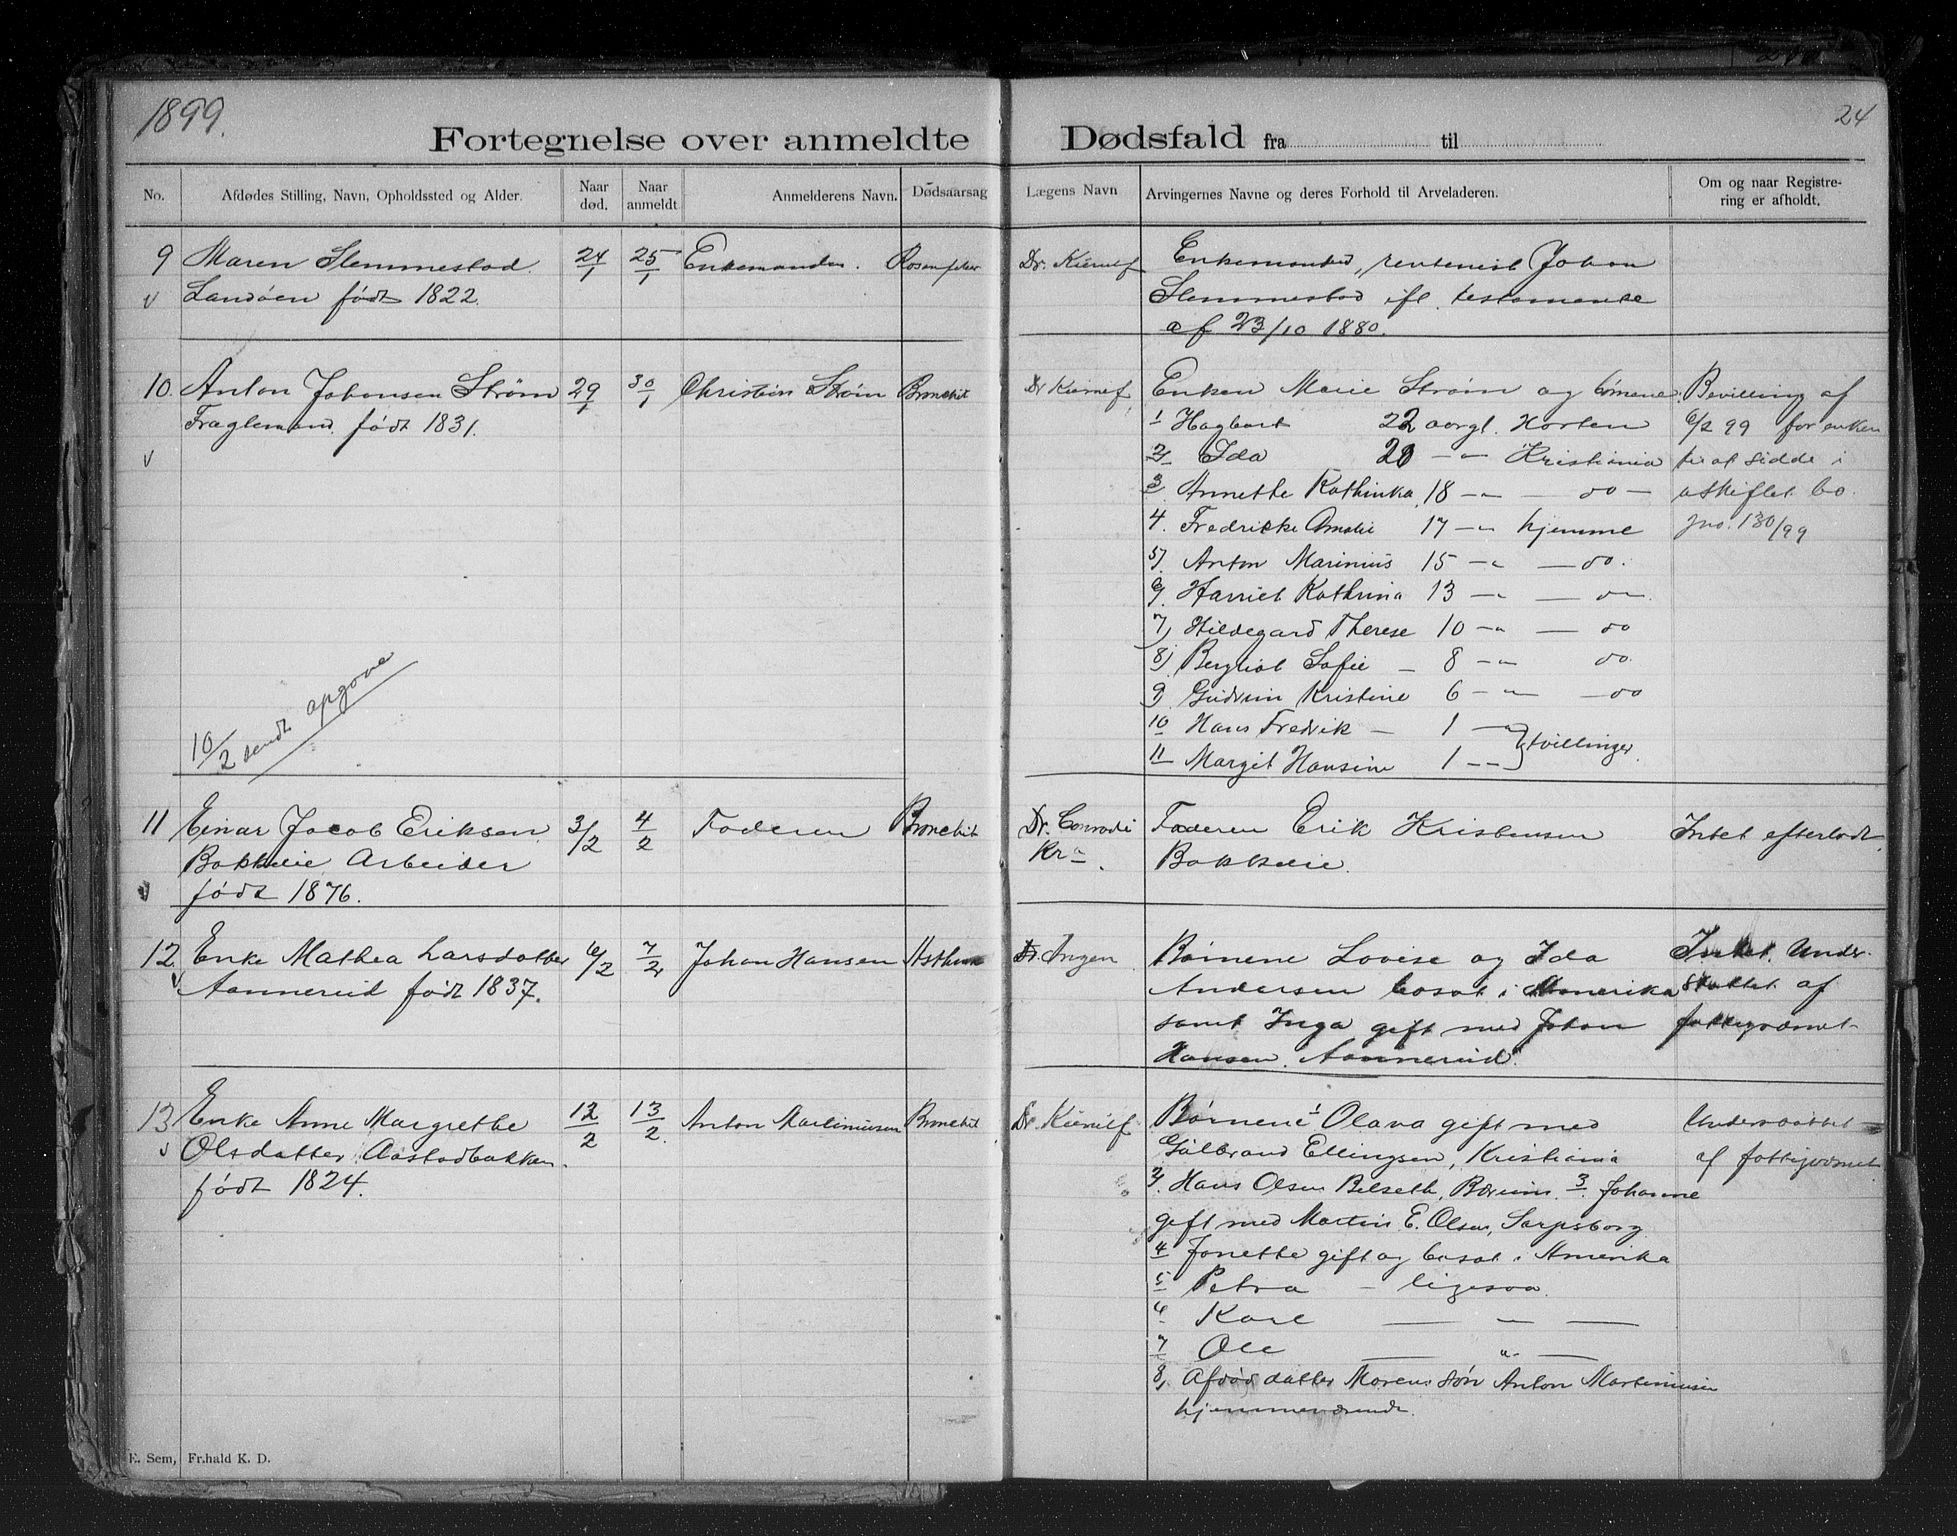 1899.
24
Fortegnelse over anmeldte Dødsfald fra til
No.
Afdødes Stilling, Navn, Opholdssted og Alder.
Naar død.
Naar anmeldt.
Anmelderens Navn.
Dødsaarsag
Lægens Navn
Arvingernes Navne og deres Forhold til Arveladeren.
Om og naar Registre-
ring er afholdt.
9 Maren Slemmestad 24/1 25/1 Enkemanden. Rosenfeber
v Landöen født 1822.
Dr. Kierulf Enkemanden, rentenist Johan
Slemmestad ifl. testamente
af 23/10 1880.
10. Anton Johansen Strøm 29/1 30/1 Christin Strøm Bronchit
Fraglemand født 1831.
v
10/2 sendt opgave
Dr Kierulf Enken Marie Strøm og børnene. Bevilling af
1 Hagbart 22 aargl. Horten 6/2 99 for enken
2 Ida 20 -"- Kristiania til at sidde i
3 Annette Kathinka, 18 -"- do - uskiftet bo.
4. Fredrikke Amalie 17 -"- hjemme Jno. 130/99
5) Anton Marinius 15 -"- do.
6) Harriet Kathrina 13 -"- do
7) Hildegard Therese 10 -"- do
8) Bergliot Sofie - 8 -"- do.
9) Gudrun Kristine 6 -"- do
10 Hans Fredrik - 1 -"-
tvillinger.
11 Margit Hansine 1 --
11 Einar Jacob Eriksen 3/2 4/2 Faderen Bronchit
Bakkeie Arbeider
v født 1876.
Dr. Conradi Faderen Erik Kristensen Intet efterladt.
Kra. Bakkeie.
12. Enke Mathea Larsdatter 6/2 7/2 Johan Hansen Asthma
v Aannerud født 1837.
Dr. Ingen Børnene Lovise og Ida Intet. Under-
Andersen bosat i Amerika støttet af
samt Inga gift med Johan fattigvæsnet-
Hansen. Aannerud.
13 Enke Anne Margrethe 12/2 13/2 Anton Martinusen Bronchit
v Olsdatter Aastadbakken.
født 1824.
Dr. Kierulf Børnene 1 Olava gift med Understøttet
Gulbrand Ellingsen, Kristiania af fattigvæsnet
2. Hans Olsen Bilseth, Bærum. 3. Johanne
gift med Martin E. Olsen, Sarpsborg
4 Jonette gift og bosat i Amerika
5 Petra - ligesaa.
6 Karl — " —
7 Ole — " —
8, Afdød datter Marens søn Anton Martinusen
hjemmeværende.
E. Sem, Fr.hald K. D.